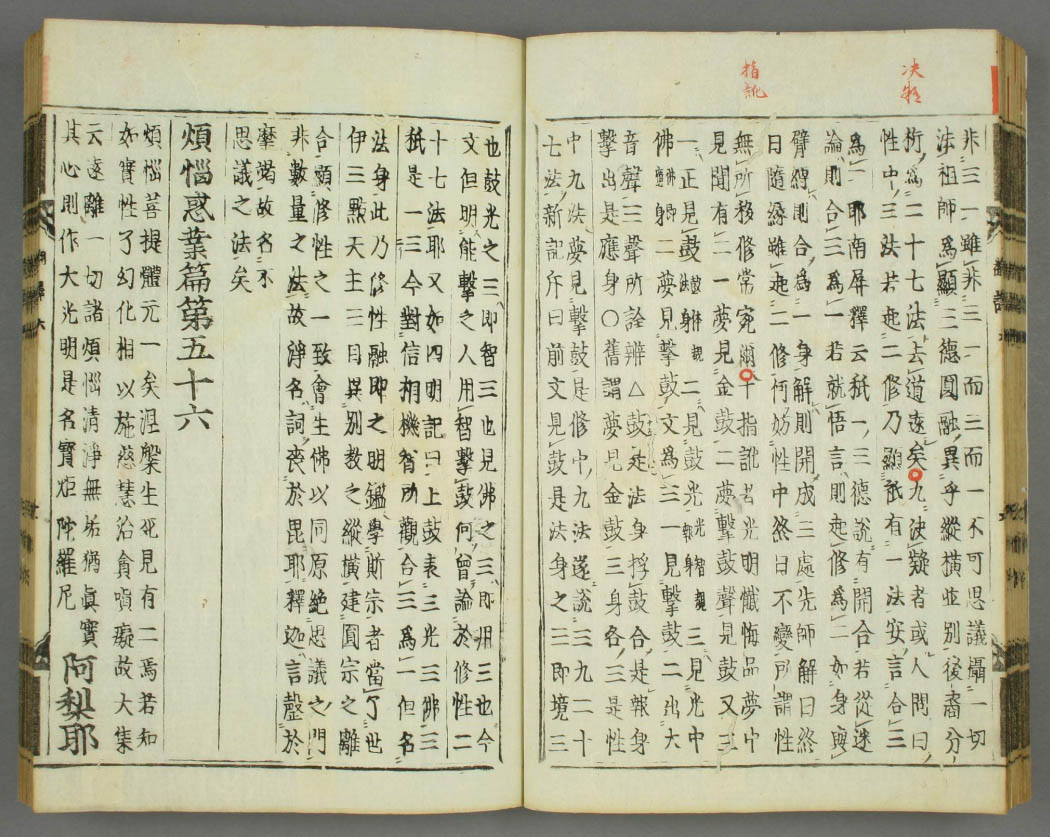 决疑
指訛
非三一雖非三一而三而一不可思議攝一切
法祖師爲顯三德圓融異乎縱橫並別後裔分
衒爲二十七法去道遠矣九決疑者或人問曰
性中三法若起二修乃顯秖有一法安言合三
爲一耶南屏釋云秖一三德說有開合若從迷
論則合三爲一若就悟言則起修爲二如身與
臂縛則合爲一身解則開成三處先師解曰終
日隨緣雖起二修何妨性中終日不變所謂性
無所移修常宛爾十指訛者光明懺悔品夢中
見聞有二一夢見金鼓二夢擊鼓聲見鼓又三
一正見鼓二見鼓光三見光中
佛二夢見擊鼓文爲三一見擊鼓二出大
音聲三聲所詮辨△鼓是法身桴鼓合是報身
擊出是應身○舊謂夢見金鼓三身各三是性
中九法夢見擊鼓是修中九法遂說三九二十
七法新記斥曰前文見鼓是法身之三即境三
也鼓光之三即智三也見佛之三即用三也今
文但明能擊之人用智擊鼓何曾論於修性二
十七法耶又如四明記曰上鼓表三光三佛三
秖是一三今對信相機智所觀合三爲一但名
法身此乃修性融即之明鑑學斯宗者當了世
伊三點天主三目異別教之縱橫建圓宗之離
合顯修性之一致會生佛以同原絕思議之門
非數量之法故淨名詞喪於毘耶釋迦言罄於
摩竭故名不
思議之法矣
煩惱惑業篇第五十六
煩惱菩提體元一矣涅槃生死見有二焉若知
如實性了幻化相以施慈慧治貪嗔癡故大集
云遠離一切諸煩惱清淨無垢猶眞實
其心則作大光明是名寶炬陀羅尼
阿梨耶